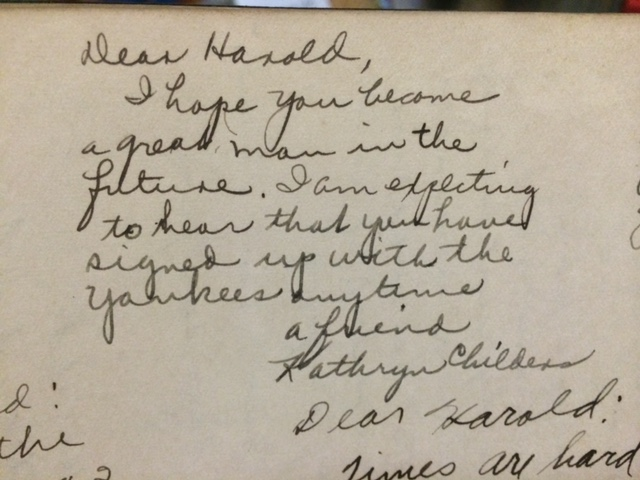 Dear Harold,
I hope you become
a great man in the
future. I am expecting
to hear that you have
signed up with the
Yankees anytime
a friend
Kathryn Childers
Dear Harold:
Times are hard
d:
the